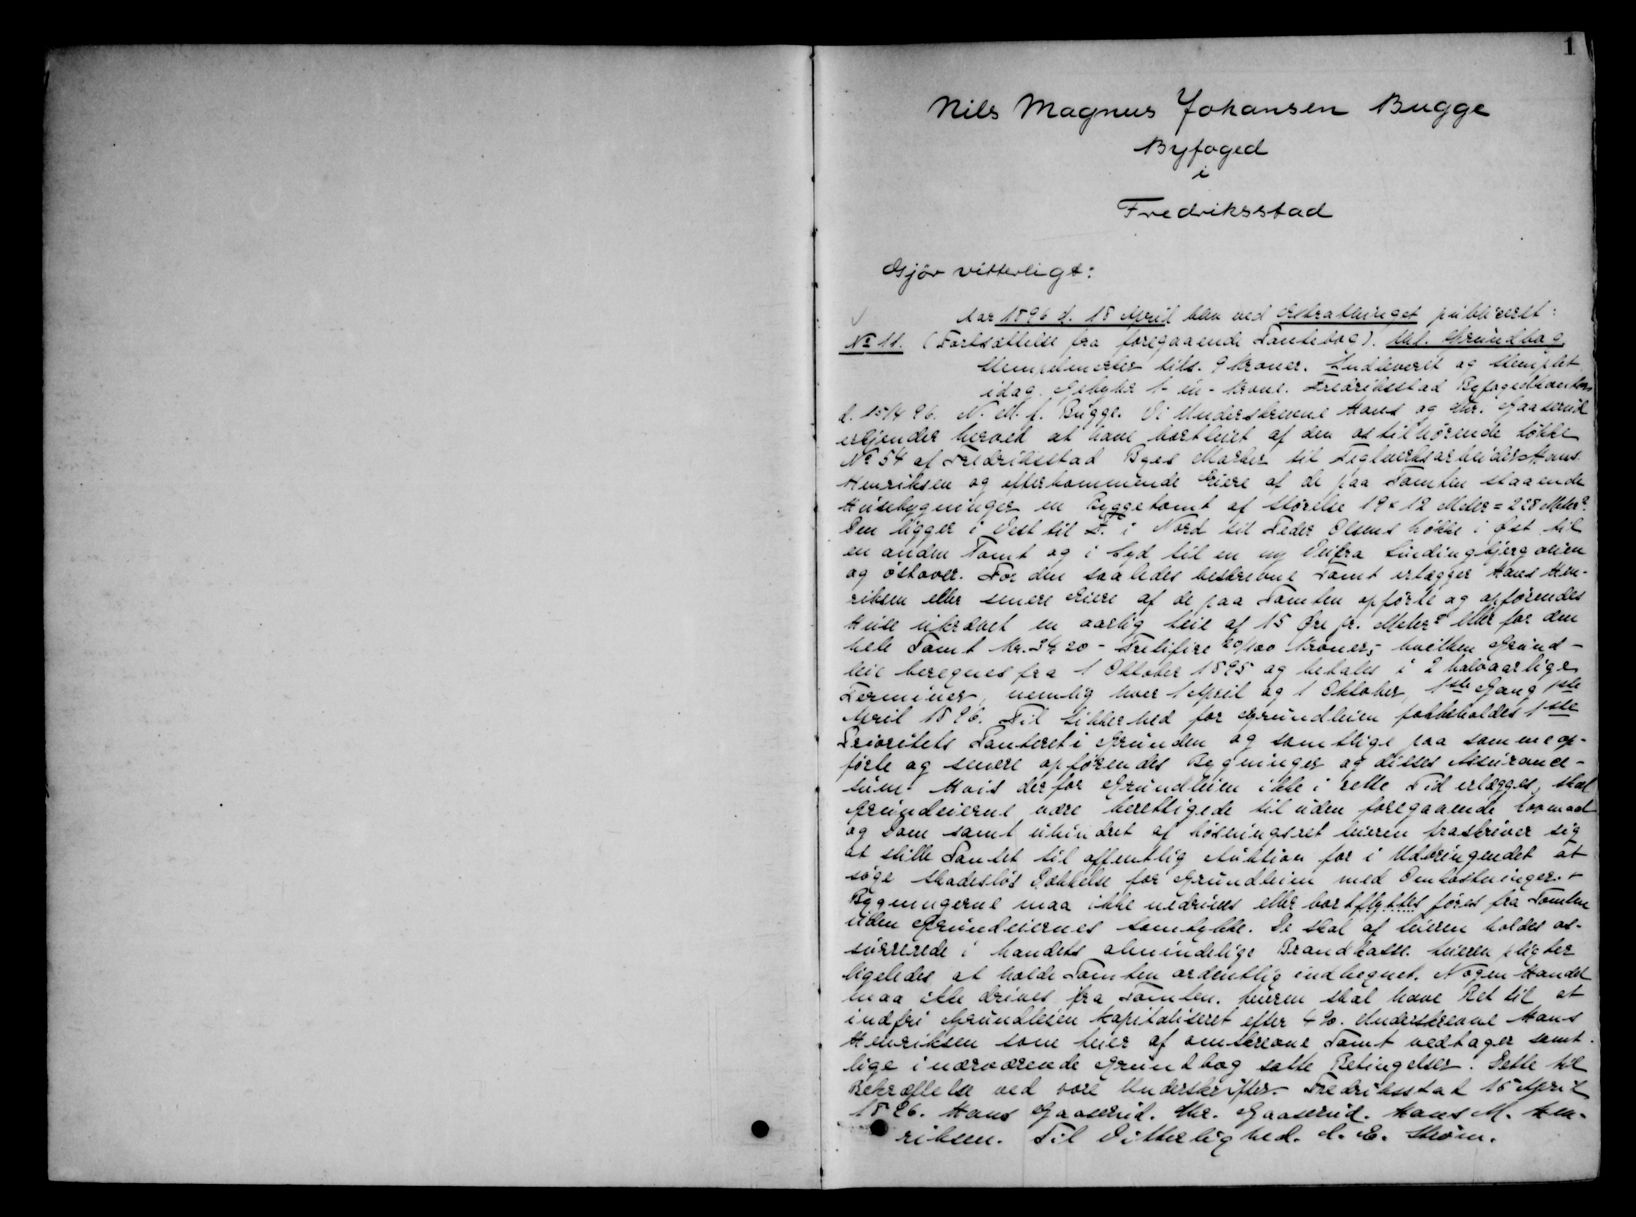 1
Nils Magnus Johansen Bugge
Byfoged
i
Fredriksstad
Gjör vitterligt:
Aar 1896 d. 18 April blev ved Extrathinget publiceret:
No 11. (Fortsættelse fra foregaaende Pantebog). Grundbog
Stempelmerker tils. 9 Kroner. Indleveret og stemplet
idag. Gebyhr 1 - en - Krone. Fredriksstad Byfogedkontor
d. 15/4 96. N. M. J. Bugge. Vi Underskrevne Hans og Chr. Gaaserud
erkjender herved at have bortleiet af den os tilhørende Løkke
No 54 af Fredriksstad Byes Marker til Teglverksarbeider Hans
Henriksen og efterkommende Eiere af de paa Tomten staaende
Husebygninger en Byggetomt af Størelse 19 x 12 Meter = 228 Meter2.
Den ligger i Vest til i Nord til Peder Olsens Løkke i Øst til
en anden Tomt og i Syd til en ny Vei fra Lindingbjergveien
og østover. For den saaledes beskrevne Tomt erlægger Hans Hen-
riksen eller senere Eiere af de paa Tomten opførte og opførendes
Huse ukrævet en aarlig Leie af 15 Øre pr. Meter2 eller for den
hele Tomt Kr. 34 20 - Tretifire 20/100 Kroner, hvilken Grund-
leie beregnes fra 1 Oktober 1895 og betales i 2 halvaarlige
Terminer, nemlig hver 1 April og 1 Oktober, 1ste Gang 1ste
April 1896. Til Sikkerhed for Grundleien forbeholdes 1ste
Prioritets Panteret i Grunden og samtlige paa samme op-
førte og senere opførendes Bygninger og disses Assurance-
sum. Hvis derfor Grundleien ikke i rette Tid erlægges, skal
Grundeierne være berettigede til uden foregaaende Lovmaal
og Dom samt uhindret af Løsningsret Leieren fraskriver sig
at stille Pantet til offentlig Auktion for i Udbringendet at
søge skadesløs Dækkelse for Grundleien med Omkostninger. -
Bygningerne maa ikke nedrives eller bortflyttes føres fra Tomten
uden Grundeiernes Samtykke. De skal af Leieren holdes as-
surerede i Landets almindelige Brandkasse. Leieren pligter
ligeledes at holde Tomten ordentlig indhegnet. Nogen Handel
maa ikke drives fra Tomten. Leieren skal have Ret til at
indfri Grundleien kapitaliseret efter 4 %. Underskrevne Hans
Henriksen som Leier af omskrevne Tomt vedtager samt-
lige i nærværende Grundbog satte Betingelser. Dette til
Bekræftelse ved vore Underskrifter. Fredriksstad 15 April
1896. Hans Gaaserud. Chr. Gaaserud. Hans M. Hen-
riksen. Til Vitterlighed. E. Strøm.